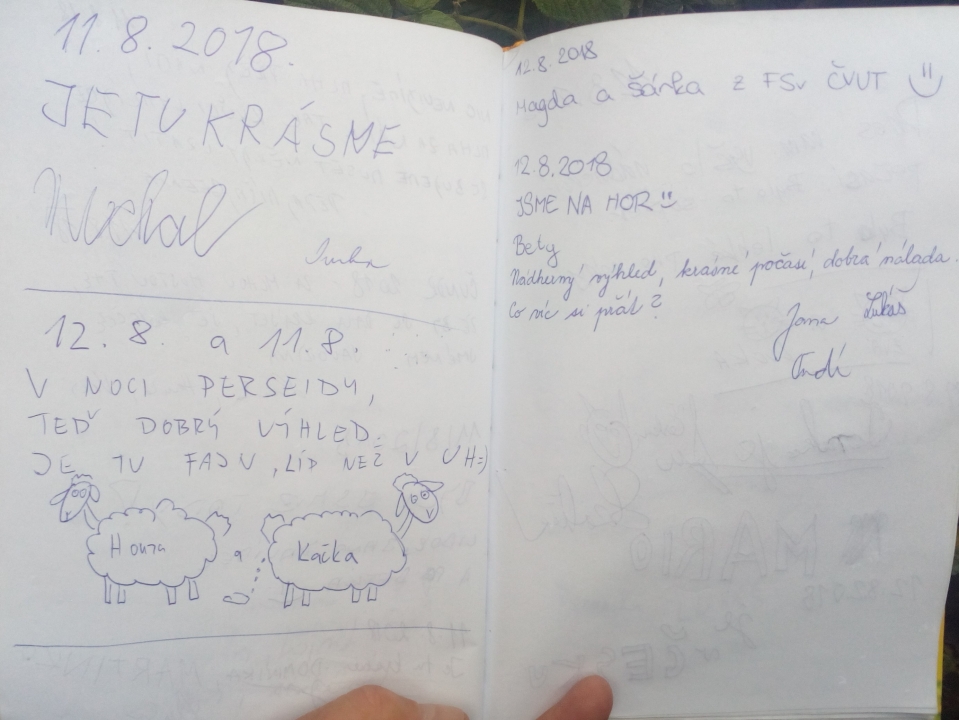 11.8.2018.
JE TU KRÁSNE
Michal
12.8. a 11.8.
V NOCI PERSEIDY,
TEĎ DOBRÝ VÝHLED.
JE TU FAJN, LÍP NEŽ V UH=)
Honza a Kačka
12.8.2018
Magda a Šárka z FSv ČVUT
12.8.2018
JSME NA HOR
Bety
Nádherný výhled, krásné počasí, dobrá nálada.
Co víc si přát?
Jana Lukáš